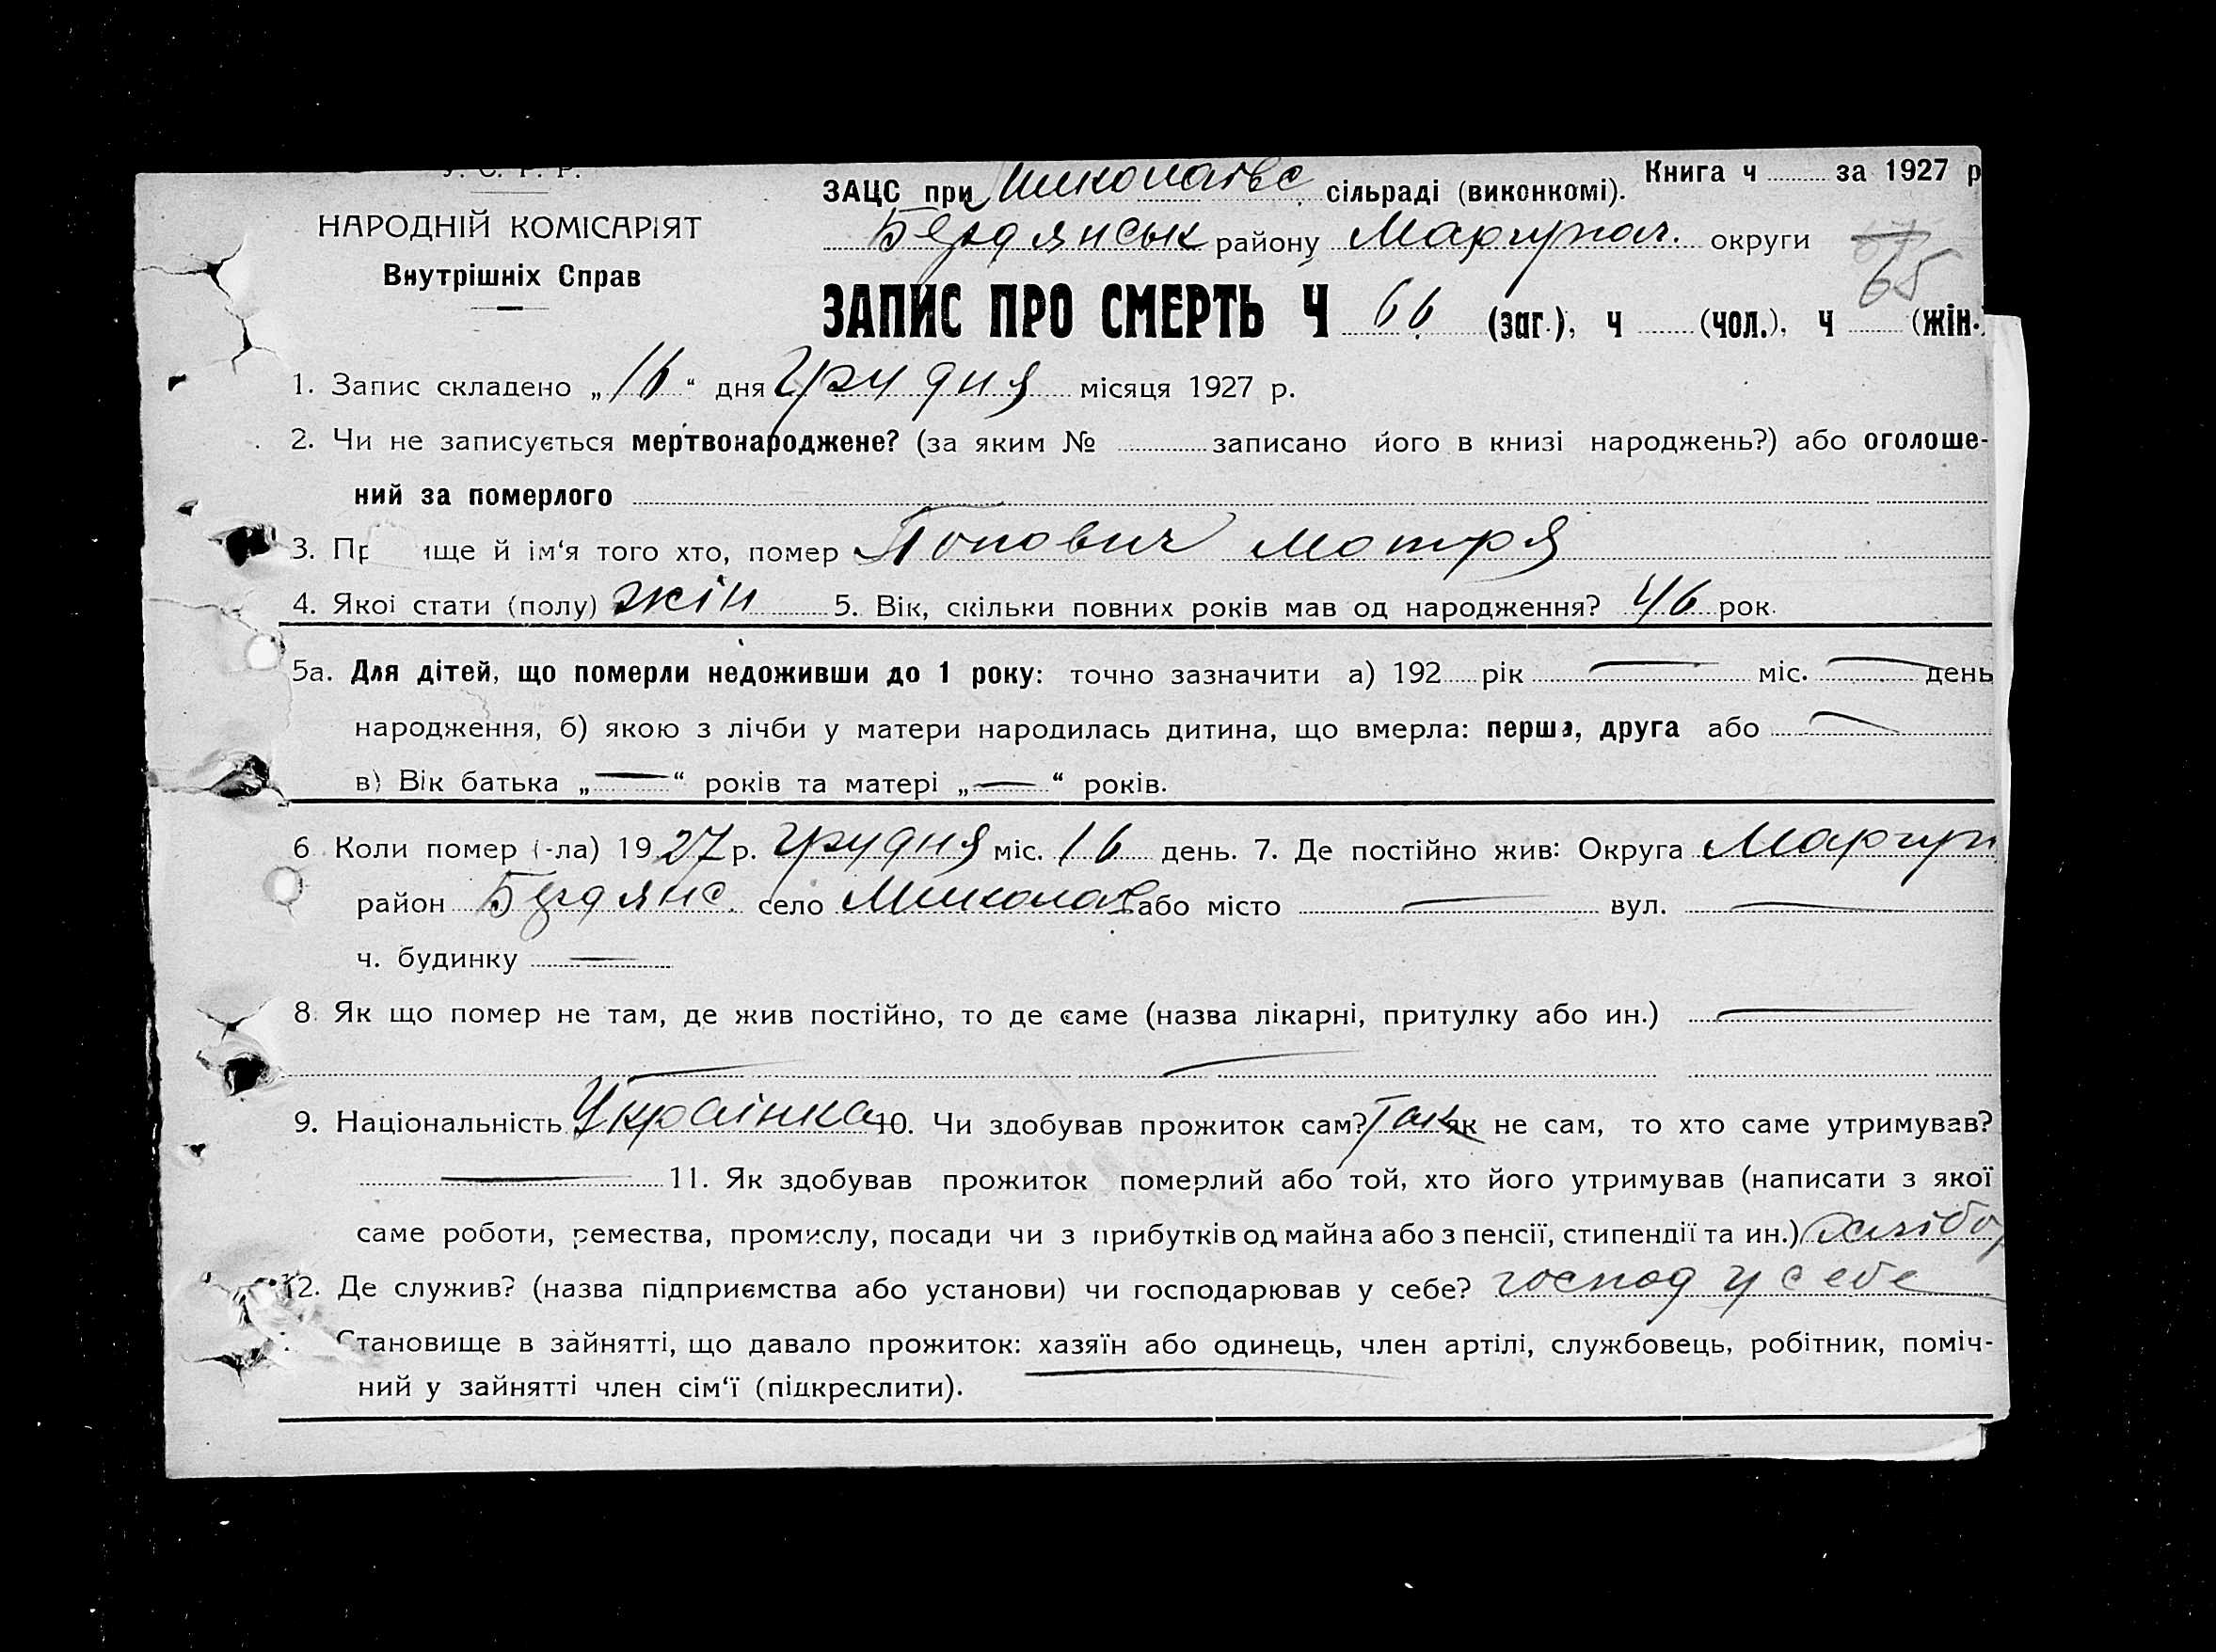 У. С. Р. Р.
НАРОДНІЙ КОМІСАРІЯТ
Внутрішніх Справ
ЗАЦС при Миколаївс сільраді (виконкомі). Книга ч за 1927 р
Бердянськ району Маріупол. округи
65
ЗАПИС ПРО СМЕРТЬ Ч 66 (заг.), ч (чол.), ч (жін.
1. Запис складено „16“ дня Грудня місяця 1927 р.
2. Чи не записується мертвонароджене? (за яким № записано його в книзі народжень?) або оголоше-
ний за померлого
3. Пр ище й ім‘я того хто, помер Попович Мотря
4. Якоі стати (полу) жін 5. Вік, скільки повних років мав од народження? 46 рок.
5а. Для дітей, що померли недоживши до 1 року: точно зазначити а) 192 рік — міс. — день
народження, б) якою з лічби у матери народилась дитина, що вмерла: перша, друга або —
в) Вік батька „—“ років та матері „—“ років.
6 Коли помер (-ла) 1927 р. грудня міс. 16 день. 7. Де постійно жив: Округа Маріуп
район Бердянс. село Миколаїв або місто — вул. —
ч. будинку —
8. Як що помер не там, де жив постійно, то де саме (назва лікарні, притулку або ин.) —
— —
9. Національність Українка 10. Чи здобував прожиток сам? Так як не сам, то хто саме утримував?
— 11. Як здобував прожиток померлий або той, хто його утримував (написати з якої
саме роботи, ремества, промислу, посади чи з прибутків од майна або з пенсії, стипендії та ин.) хлібор
12. Де служив? (назва підприємства або установи) чи господарював у себе? господ у себе
Становище в зайнятті, що давало прожиток: хазяїн або одинець, член артілі, службовець, робітник, поміч-
ний у зайнятті член сім‘ї (підкреслити).